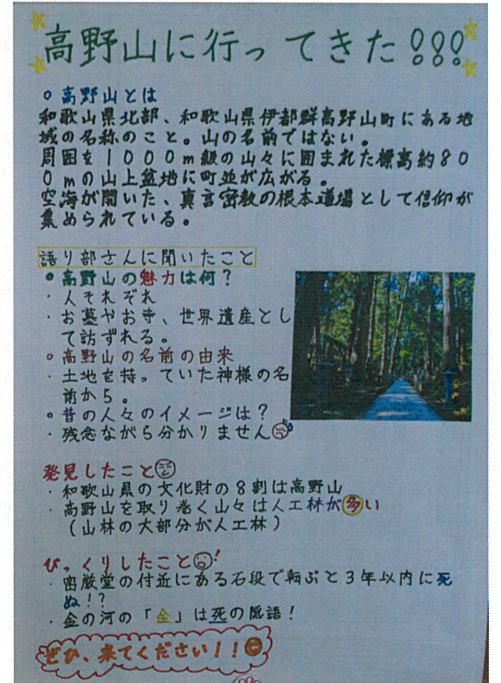 高野山に行ってきた!!!
○高野山とは
和歌山県北部、和歌山県伊都群高野山町にある地
域の名称のこと。山の名前ではない。
周囲を1000m級の山々に囲まれた標高約80
0mの山上盆地に町並が広がる。
空海が開いた、真言密教の根本道場として信仰が
集められている。
語り部さんに聞いたこと
○高野山の魅力は何?
・人それぞれ
・お墓やお寺、世界遺産とし
て訪ずれる。
○高野山の名前の由来
・土地を持っていた神様の名
前から。
○昔の人々のイメージは?
・残念ながら分かりません
発見したこと
・和歌山県の文化財の8割は高野山
・高野山を取り巻く山々は人工林が多い
(山林の大部分が人工林)
びっくりしたこと!
・密厳堂の付近にある石段で転ぶと3年以内に死
ぬ!?
・金の河の「金」は死の隠語!
ぜひ、来てください!!